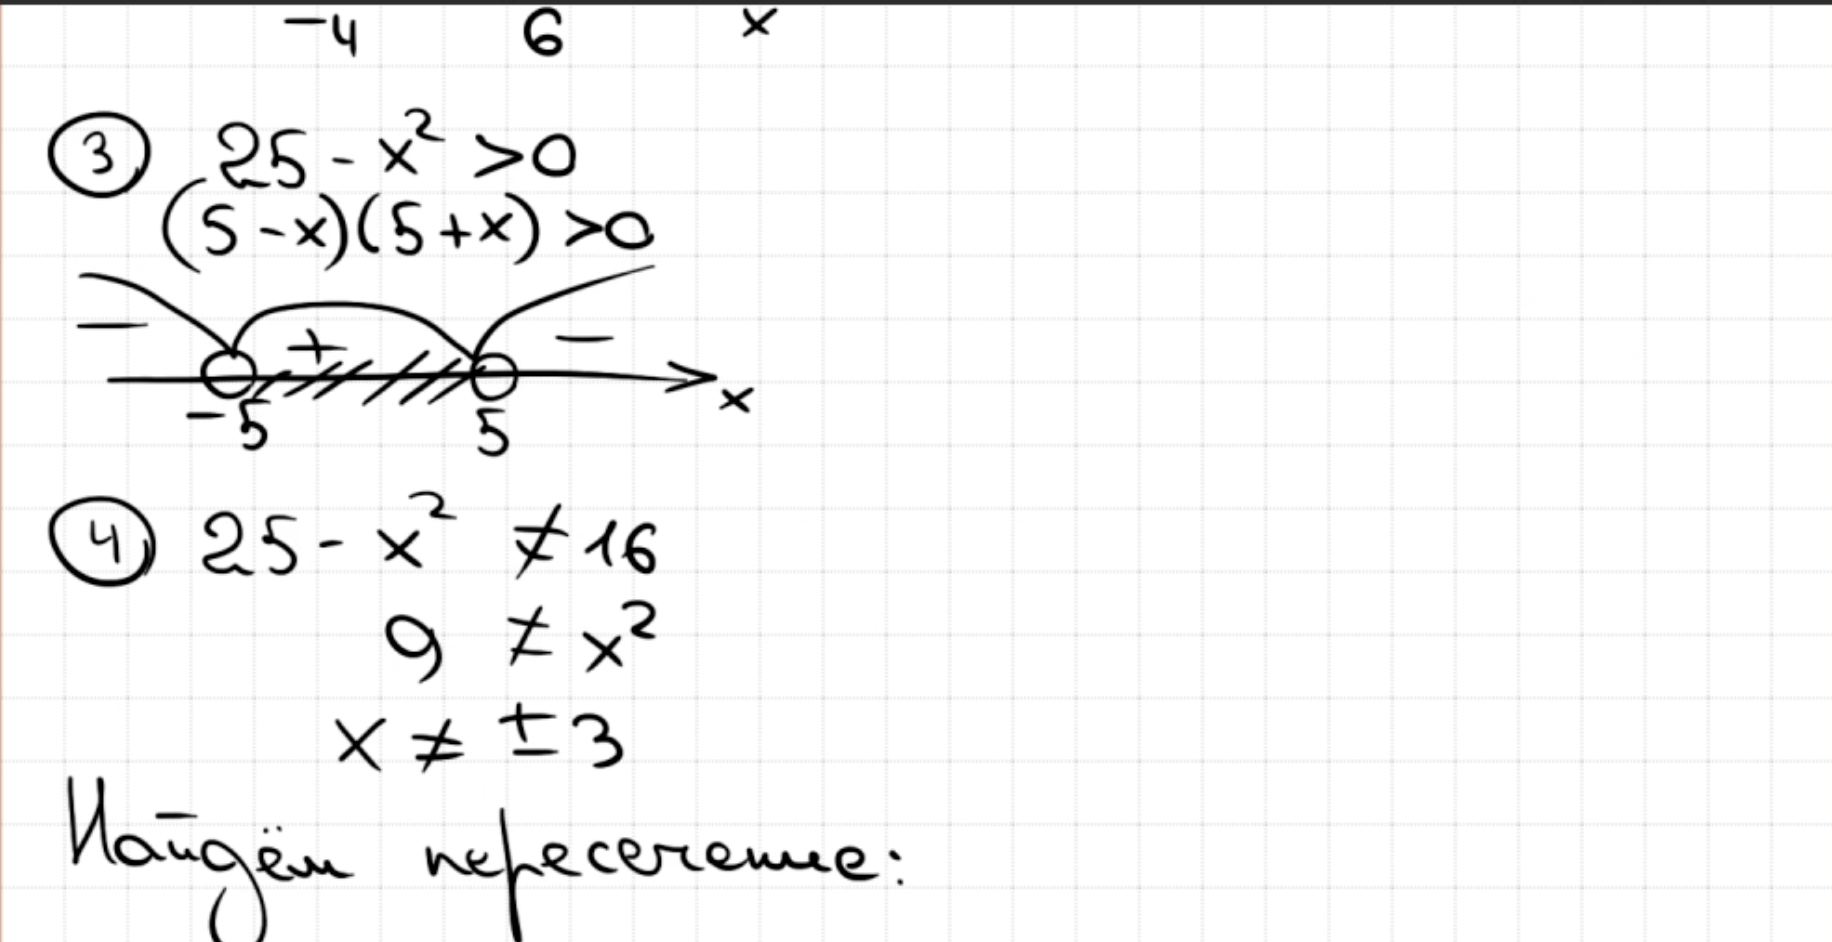 -4 6 x
3 25 - x² >0
(5-x)(5+x) >0
- + -
-5 5 x
4 25 - x² ≠ 16
9 ≠ x²
x ≠ ±3
Найдём пересечение: